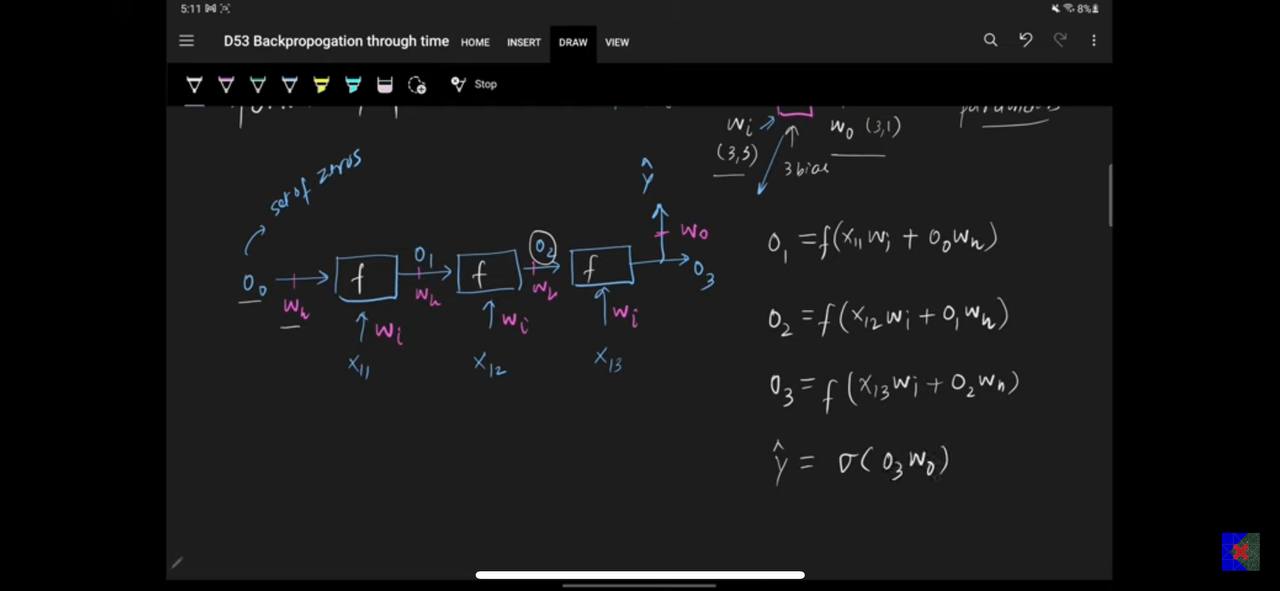 5:11
8%
D53 Backpropogation through time HOME INSERT DRAW VIEW
Stop
wi
(3,3)
wo (3,1)
3 bias
set of zeros
ŷ
wo
O0
wh
f
O1
wh
f
O2
wh
f
O3
wi
wi
wi
x11
x12
x13
O1 = f(x11 wi + O0 wh)
O2 = f(x12 wi + O1 wh)
O3 = f(x13 wi + O2 wh)
ŷ = σ(O3 wo)